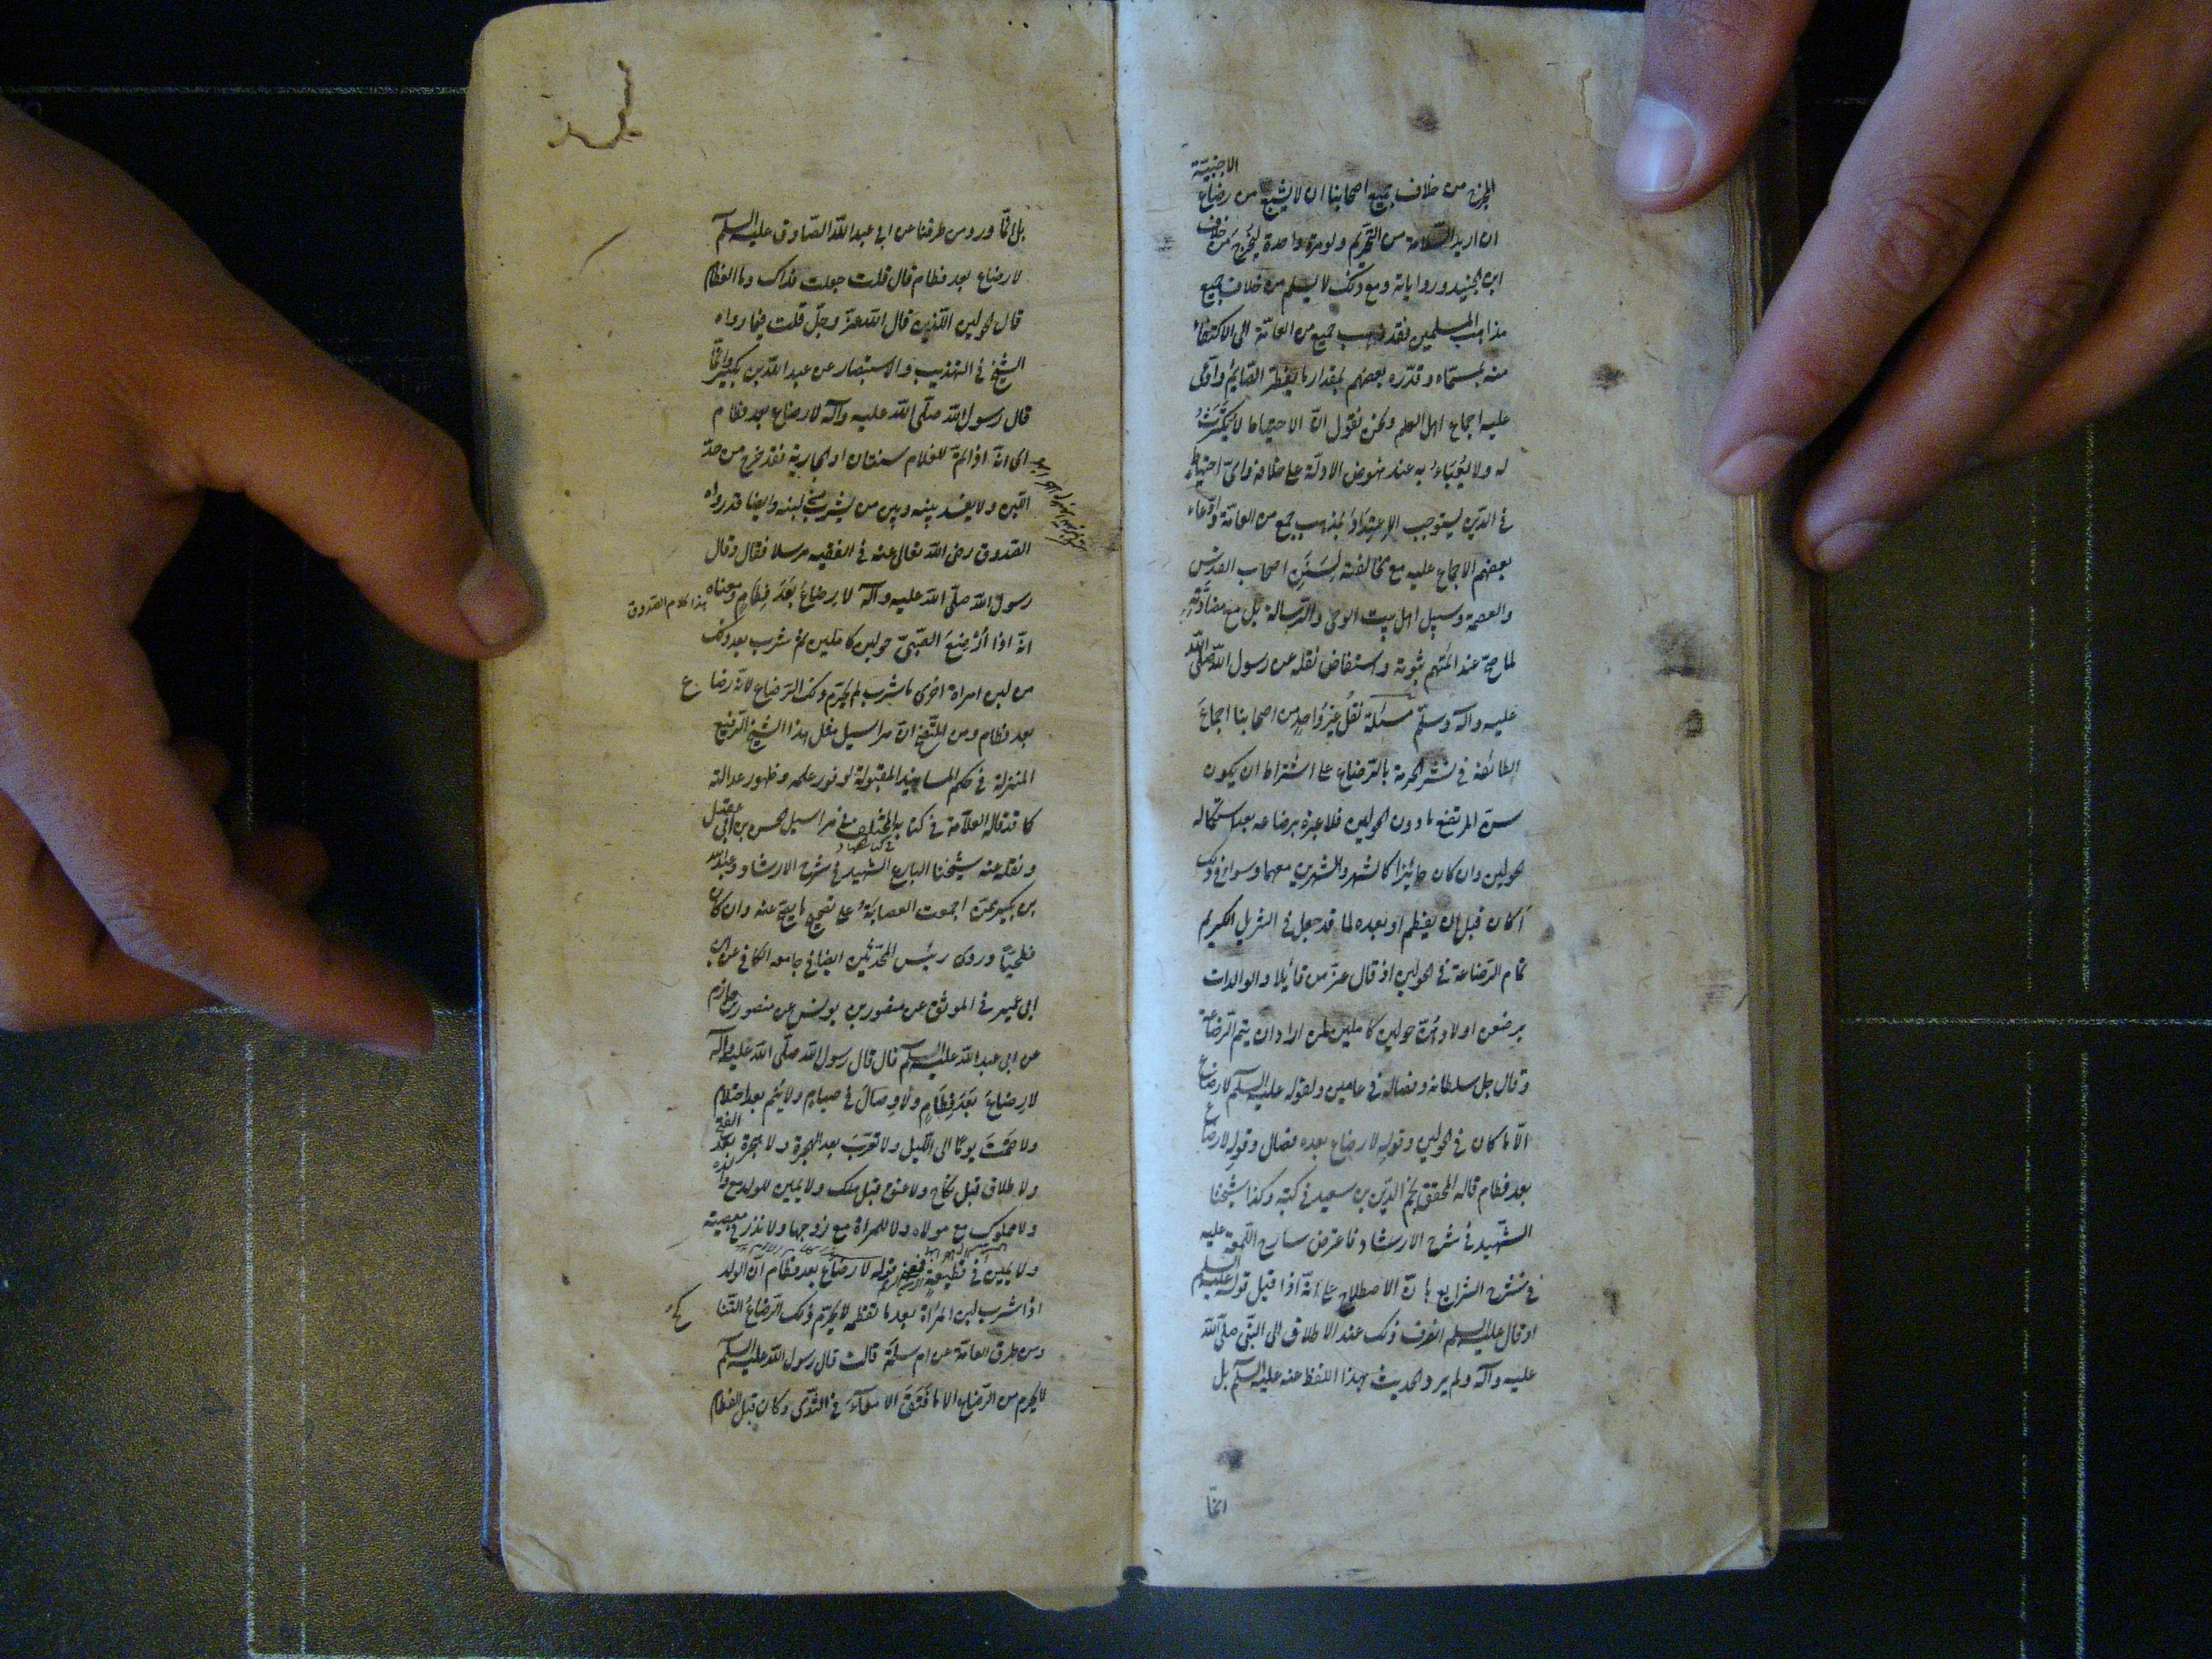 الاجنبية
المخرج من خلاف جميع اصحابنا ان لا يشبع من رضاع
ان اريد السلامة من التحريم ولو مرة واحدة ليخرج من خلاف
ابن الجنيد ورواياته ومع ذلك لا يسلم من خلاف جميع
مذاهب المسلمين فقد ذهب جمع من العامّة الى الاكتفاء
منه بمسماه وقدّره بعضهم بمقدار ما يفطر الصّائم وادّعى
عليه اجماع اهل العلم ونحن نقول انّ الاحتياط لا يكترث
له ولا يُعبَاءُ به عند نهوض الادلّة على خلافه وايّ احتياط
في الدّين يستوجب الاعتداد بمذهب جمع من العامّة وادّعاء
بعضهم الاجماع عليه مع مخالفته لِسَنَنِ اصحاب القدس
والعصمة وسبيل اهل بيت الوحي والرّسالة بل مع مضادّته
لما صحّ عند كلّهم ثبوته واستفاض نقله عن رسول الله صلّى الله
عليه وآله وسلّم مسئلة نقل غير واحد من اصحابنا اجماع
الطائفة في نشر الحرمة بالرّضاع على اشتراط ان يكون
سنّ المرتضع ما دون الحولين فلا عبرة برضاعه بعد استكماله
حولين وان كان جائزا كالشهر والشهرين معهما وسواء في ذلك
أكان قبل ان يفطم او بعده لما قد جعل في التنزيل الكريم
تمام الرّضاعة في الحولين اذ قال عزّ من قائلا والوالدات
يرضعن اولادهنّ حولين كاملين لمن اراد ان يتم الرّضاعة
وقال جل سلطانه وفصاله في عامين ولقوله عليه السلم لا رضاع
الّا ما كان في الحولين وقوله لا رضاع بعده فصال وقوله لا رضاع
بعد فطام قاله المحقق نجم الدّين بن سعيد في كتبه وكذا شيخنا
الشّهيد في شرح الارشاد فاعترض شارح اللمعة عليه
في شرح الشرايع بانّ الاصطلاح على انّه اذا قيل قوله عليه السلم
او قال عليه السلم انصرف ذلك عند الاطلاق الى النّبي صلّى الله
عليه وآله ولم يرو الحديث بهذا اللفظ عنه عليه السلم بل
انّما
بل انّما ورد من طرقنا عن ابي عبد الله الصّادق عليه السلم
لا رضاع بعد فطام قال قلت جعلت فداك وما الفطام
قال الحولين اللّذين قال الله عزّ وجلّ قلت فيما رواه
الشيخ في التهذيب والاستبصار عن عبد الله بن بكير وانّما
قال رسول الله صلّى الله عليه وآله لا رضاع بعد فطام
اي انّه اذا تمّ للغلام سنتان او الجارية فقد خرج من حدّ
اللّبن ولا يفسد بينه وبين من يشرب من لبنه وايضا قد رواه
الصّدوق رضى الله تعالى عنه في الفقيه مرسلا فقال وقال
رسول الله صلّى الله عليه وآله لا رِضاعَ بَعَدَ فِطامٍ ومعناه
هذا كلام الصّدوق
انّه اذا اُرْضِعَ الصّبيّ حولين كاملين ثم شرب بعد ذلك
من لبن امراة اخرى ما شرب لم يحرّم ذلك الرّضاع لانّه رضاع
بعد فطام ومن المتّضح انّ مراسيل مثل هذا الشيخ الرّفيع
المنزلة في حكم المسانيد المقبولة لوفور علمه وظهور عدالته
كما قد قاله العلّامة في كتابه المختلف في مراسيل الحسن بن ابي عقيل
ونقله عنه شيخنا البارع الشهيد في شرح الارشاد وعبد الله
بن بكير ممّن اجمعت العصابة على تصحيح ما يصحّ عنه وان كان
فطحيّا وروى رئيس المحدّثين ايضا في جامعه الكافي عن ابن
ابي عمير في الموثق عن منصور بن يونس عن منصور بن حازم
عن ابي عبد الله عليه السلم قال قال رسول الله صلّى الله عليه وآله
لا رِضاعَ بَعَدَ فِطَامٍ ولا وِصالَ في صيام ولا يتم بعد احتلام
ولا صَمْتَ يومًا الى اللّيل ولا تعرّبَ بعد الهجرة ولا هجرة بعد الفتح
ولا طلاق قبل نكاح ولا عتق قبل ملك ولا يمين للولد مع والده
ولا مملوك مع مولاه ولا للمراة مع زوجها ولا نذر في معصيته
ولا يمين في قطيعة فمعنى قوله لا رضاع بعد فطام ان الولد
اذا شرب لبن المرأة بعد ما تفطمه لا يحرّم ذلك الرّضاع التنا
كح
ومن طرق العامّة عن ام سلمة قالت قال رسول الله عليه السلم
لا يحرم من الرّضاع الا ما فَتَقَ الامعآءَ في الثدي وكان قبل الفطام